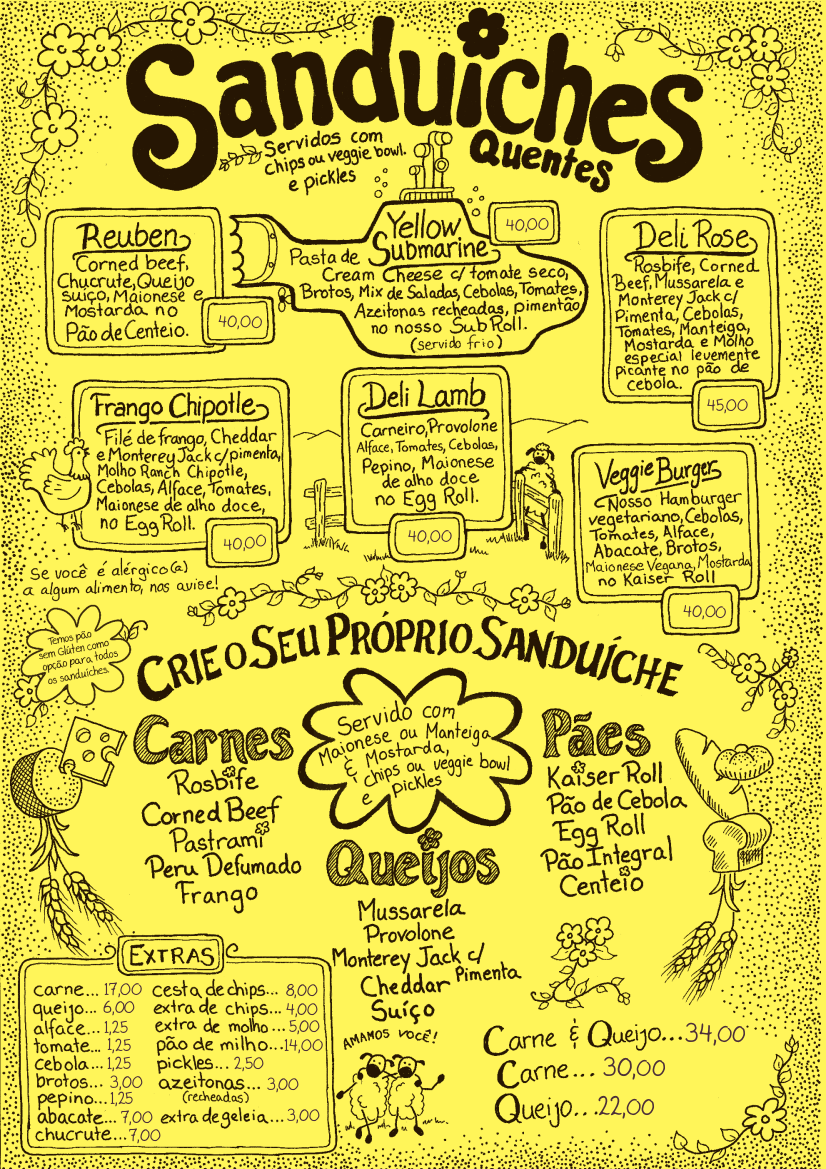 Sanduíches
Quentes
Servidos com
chips ou veggie bowl.
e pickles
Reuben
Corned beef,
Chucrute, Queijo
suíço, Maionese e
Mostarda no
Pão de Centeio.
40,00
Yellow
Submarine
40,00
Pasta de
Cream Cheese c/ tomate seco,
Brotos, Mix de Saladas, Cebolas, Tomates,
Azeitonas recheadas, pimentão
no nosso Sub Roll.
(servido frio)
Deli Rose
Rosbife, Corned
Beef, Mussarela e
Monterey Jack c/
Pimenta, Cebolas,
Tomates, Manteiga,
Mostarda e Molho
especial levemente
picante no pão de
cebola.
45,00
Frango Chipotle
Filé de frango, Cheddar
e Monterey Jack c/pimenta,
Molho Ranch Chipotle,
Cebolas, Alface, Tomates,
Maionese de alho doce,
no Egg Roll.
40,00
Deli Lamb
Carneiro, Provolone
Alface, Tomates, Cebolas,
Pepino, Maionese
de alho doce
no Egg Roll.
40,00
Veggie Burger
Nosso Hamburger
vegetariano, Cebolas,
Tomates, Alface,
Abacate, Brotos,
Maionese Vegana, Mostarda
no Kaiser Roll
40,00
Se você é alérgico(a)
a algum alimento, nos avise!
Temos pão
sem Glúten como
opção para todos
os sanduíches.
CRIE O SEU PRÓPRIO SANDUÍCHE
Servido com
Maionese ou Manteiga
& Mostarda,
chips ou veggie bowl
e pickles
Carnes
Rosbife
Corned Beef
Pastrami
Peru Defumado
Frango
Queijos
Mussarela
Provolone
Monterey Jack c/
Pimenta
Cheddar
Suíço
Pães
Kaiser Roll
Pão de Cebola
Egg Roll
Pão Integral
Centeio
EXTRAS
carne... 17,00
queijo... 6,00
alface... 1,25
tomate... 1,25
cebola... 1,25
brotos... 3,00
pepino... 1,25
abacate... 7,00
chucrute... 7,00
cesta de chips... 8,00
extra de chips... 4,00
extra de molho... 5,00
pão de milho... 14,00
pickles... 2,50
azeitonas... 3,00
(recheadas)
extra de geleia... 3,00
AMAMOS VOCÊ!
Carne & Queijo... 34,00
Carne... 30,00
Queijo... 22,00